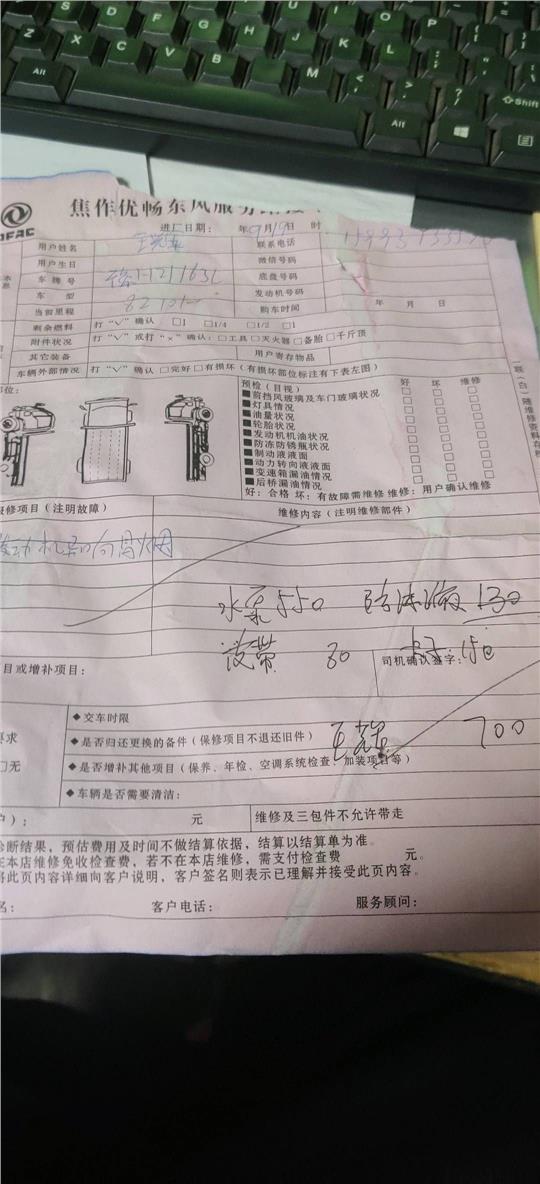 焦作优畅东风服务站
进厂日期: 年9月19日 时
用户姓名 联系电话
用户生日 微信号码
车牌号 底盘号码
车型 发动机号码
当前里程 购车时间 年 月 日
剩余燃料 打"√"确认 □1 □1/4 □1/2 □1
附件状况 打"√"或打"×"确认: □工具 □灭火器 □备胎 □千斤顶
其它装备 用户寄存物品
车辆外部情况 打"√"确认 □完好 □有损坏(有损坏部位标注有下表左图)
部位:
预检(目视) 好 坏 维修
■前挡风玻璃及车门玻璃状况 □ □ □
■灯具情况 □ □ □
■油量状况 □ □ □
■轮胎状况 □ □ □
■发动机机油状况 □ □ □
■防冻防锈瓶状况 □ □ □
■制动液液面 □ □ □
■动力转向液液面 □ □ □
■变速箱漏油情况 □ □ □
■后桥漏油情况 □ □ □
好: 合格 坏: 有故障需维修 维修: 用户确认维修
报修项目(注明故障) 维修内容(注明维修部件)
发动机 向冒烟
水泵550 防冻液130
皮带 30 150
目或增补项目: 司机确认签字:
◆交车时限
要求 ◆是否归还更换的备件(保修项目不退还旧件) 700
□无 ◆是否增补其他项目(保养、年检、空调系统检查、加装项目等)
◆车辆是否需要清洁:
户): 元 维修及三包件不允许带走
诊断结果,预估费用及时间不做结算依据,结算以结算单为准。
在本店维修免收检查费,若不在本店维修,需支付检查费 元。
将此页内容详细向客户说明,客户签名则表示已理解并接受此页内容。
名: 客户电话: 服务顾问: